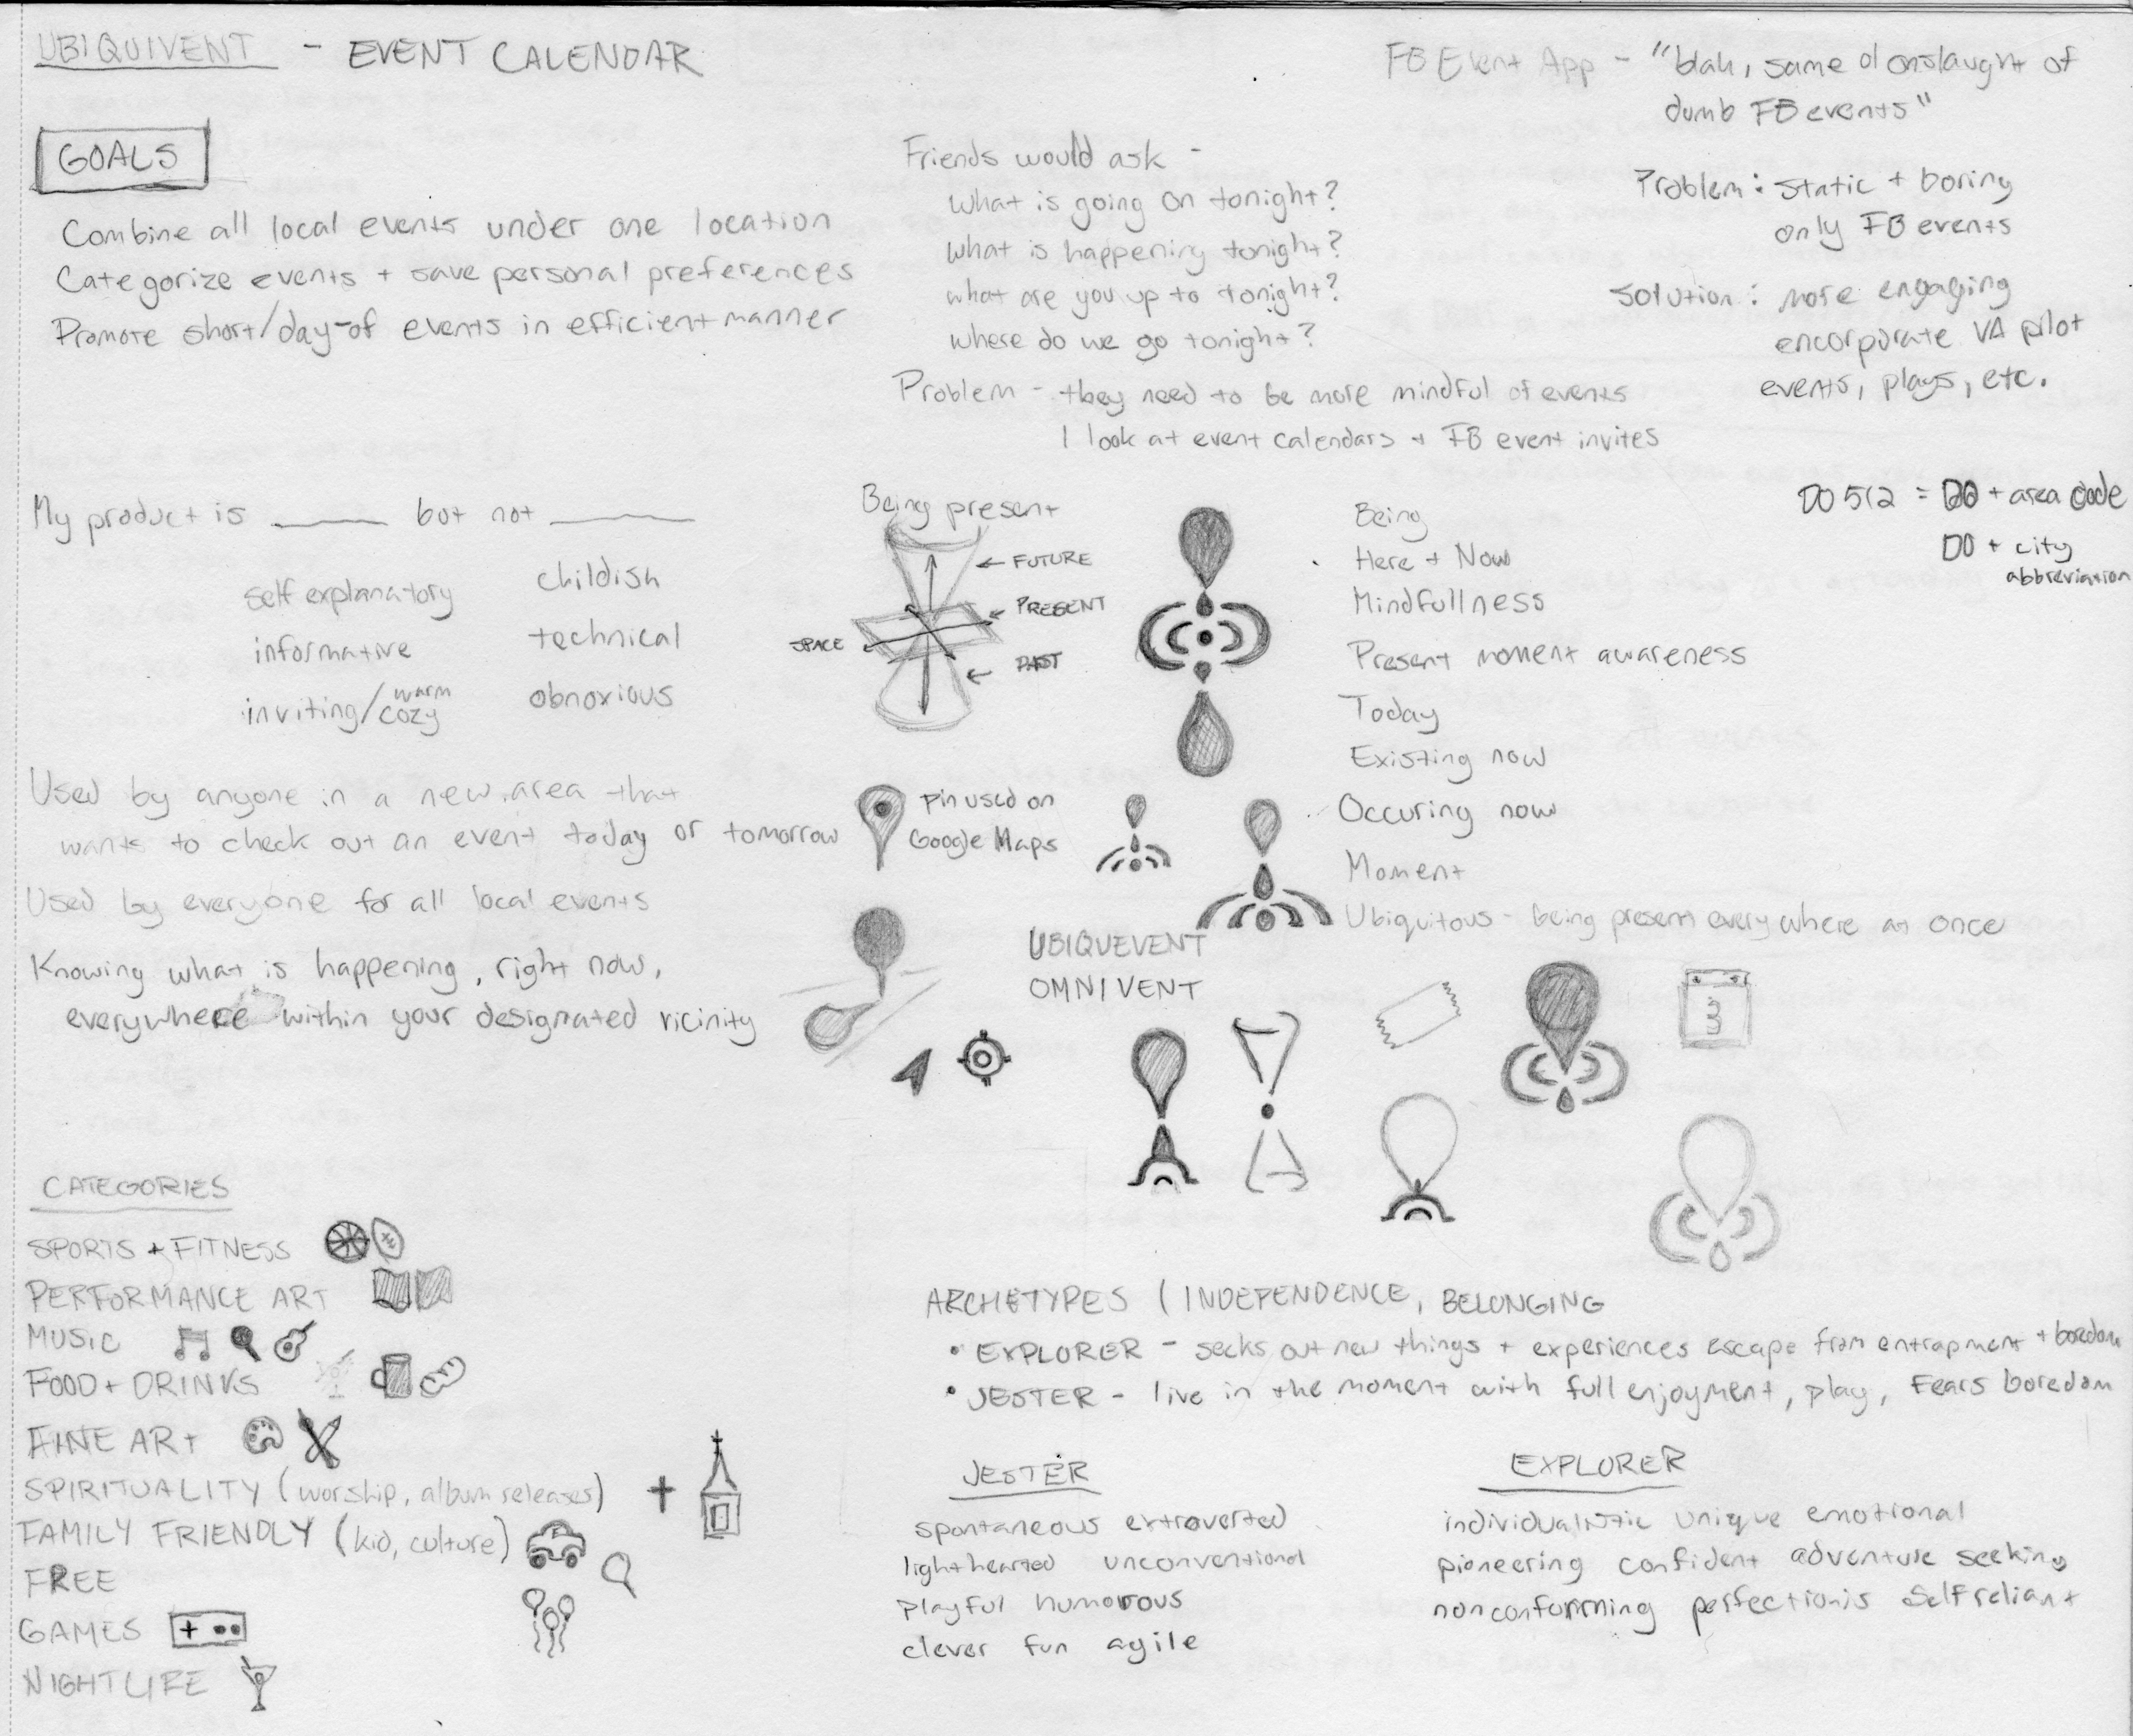 UBIQUIVENT - EVENT CALENDAR
GOALS
Combine all local events under one location
Categorize events + save personal preferences
Promote short/day-of events in efficient manner
Friends would ask -
what is going on tonight?
what is happening tonight?
what are you up to tonight?
where do we go tonight?
Problem - they need to be more mindful of events
I look at event calendars + FB event invites
FB Event App - "blah, same ol onslaught of
dumb FB events"
Problem: static + boring
only FB events
Solution: more engaging
encorporate VA pilot
events, plays, etc.
DO 512 = DO + area code
DO + city
abbreviation
My product is ______ but not ______
self explanatory childish
informative technical
inviting/warm cozy obnoxious
Used by anyone in a new area that
wants to check out an event today or tomorrow
Used by everyone for all local events
Knowing what is happening, right now,
everywhere within your designated vicinity
Being present
FUTURE
PRESENT
SPACE
PAST
pin used on
Google Maps
Being
Here + Now
Mindfullness
Present moment awareness
Today
Existing now
Occuring now
Moment
Ubiquitous - being present everywhere at once
UBIQUEVENT
OMNIVENT
3
CATEGORIES
SPORTS + FITNESS
PERFORMANCE ART
MUSIC
FOOD + DRINKS
FINE ART
SPIRITUALITY (worship, album releases)
FAMILY FRIENDLY (kid, culture)
FREE
GAMES
NIGHTLIFE
ARCHETYPES (INDEPENDENCE, BELONGING
• EXPLORER - seeks out new things + experiences escape from entrapment + boredom
• JESTER - live in the moment with full enjoyment, play, fears boredom
JESTER
spontaneous extroverted
lighthearted unconventional
playful humorous
clever fun agile
EXPLORER
individualistic unique emotional
pioneering confident adventure seeking
nonconforming perfectionis selfreliant